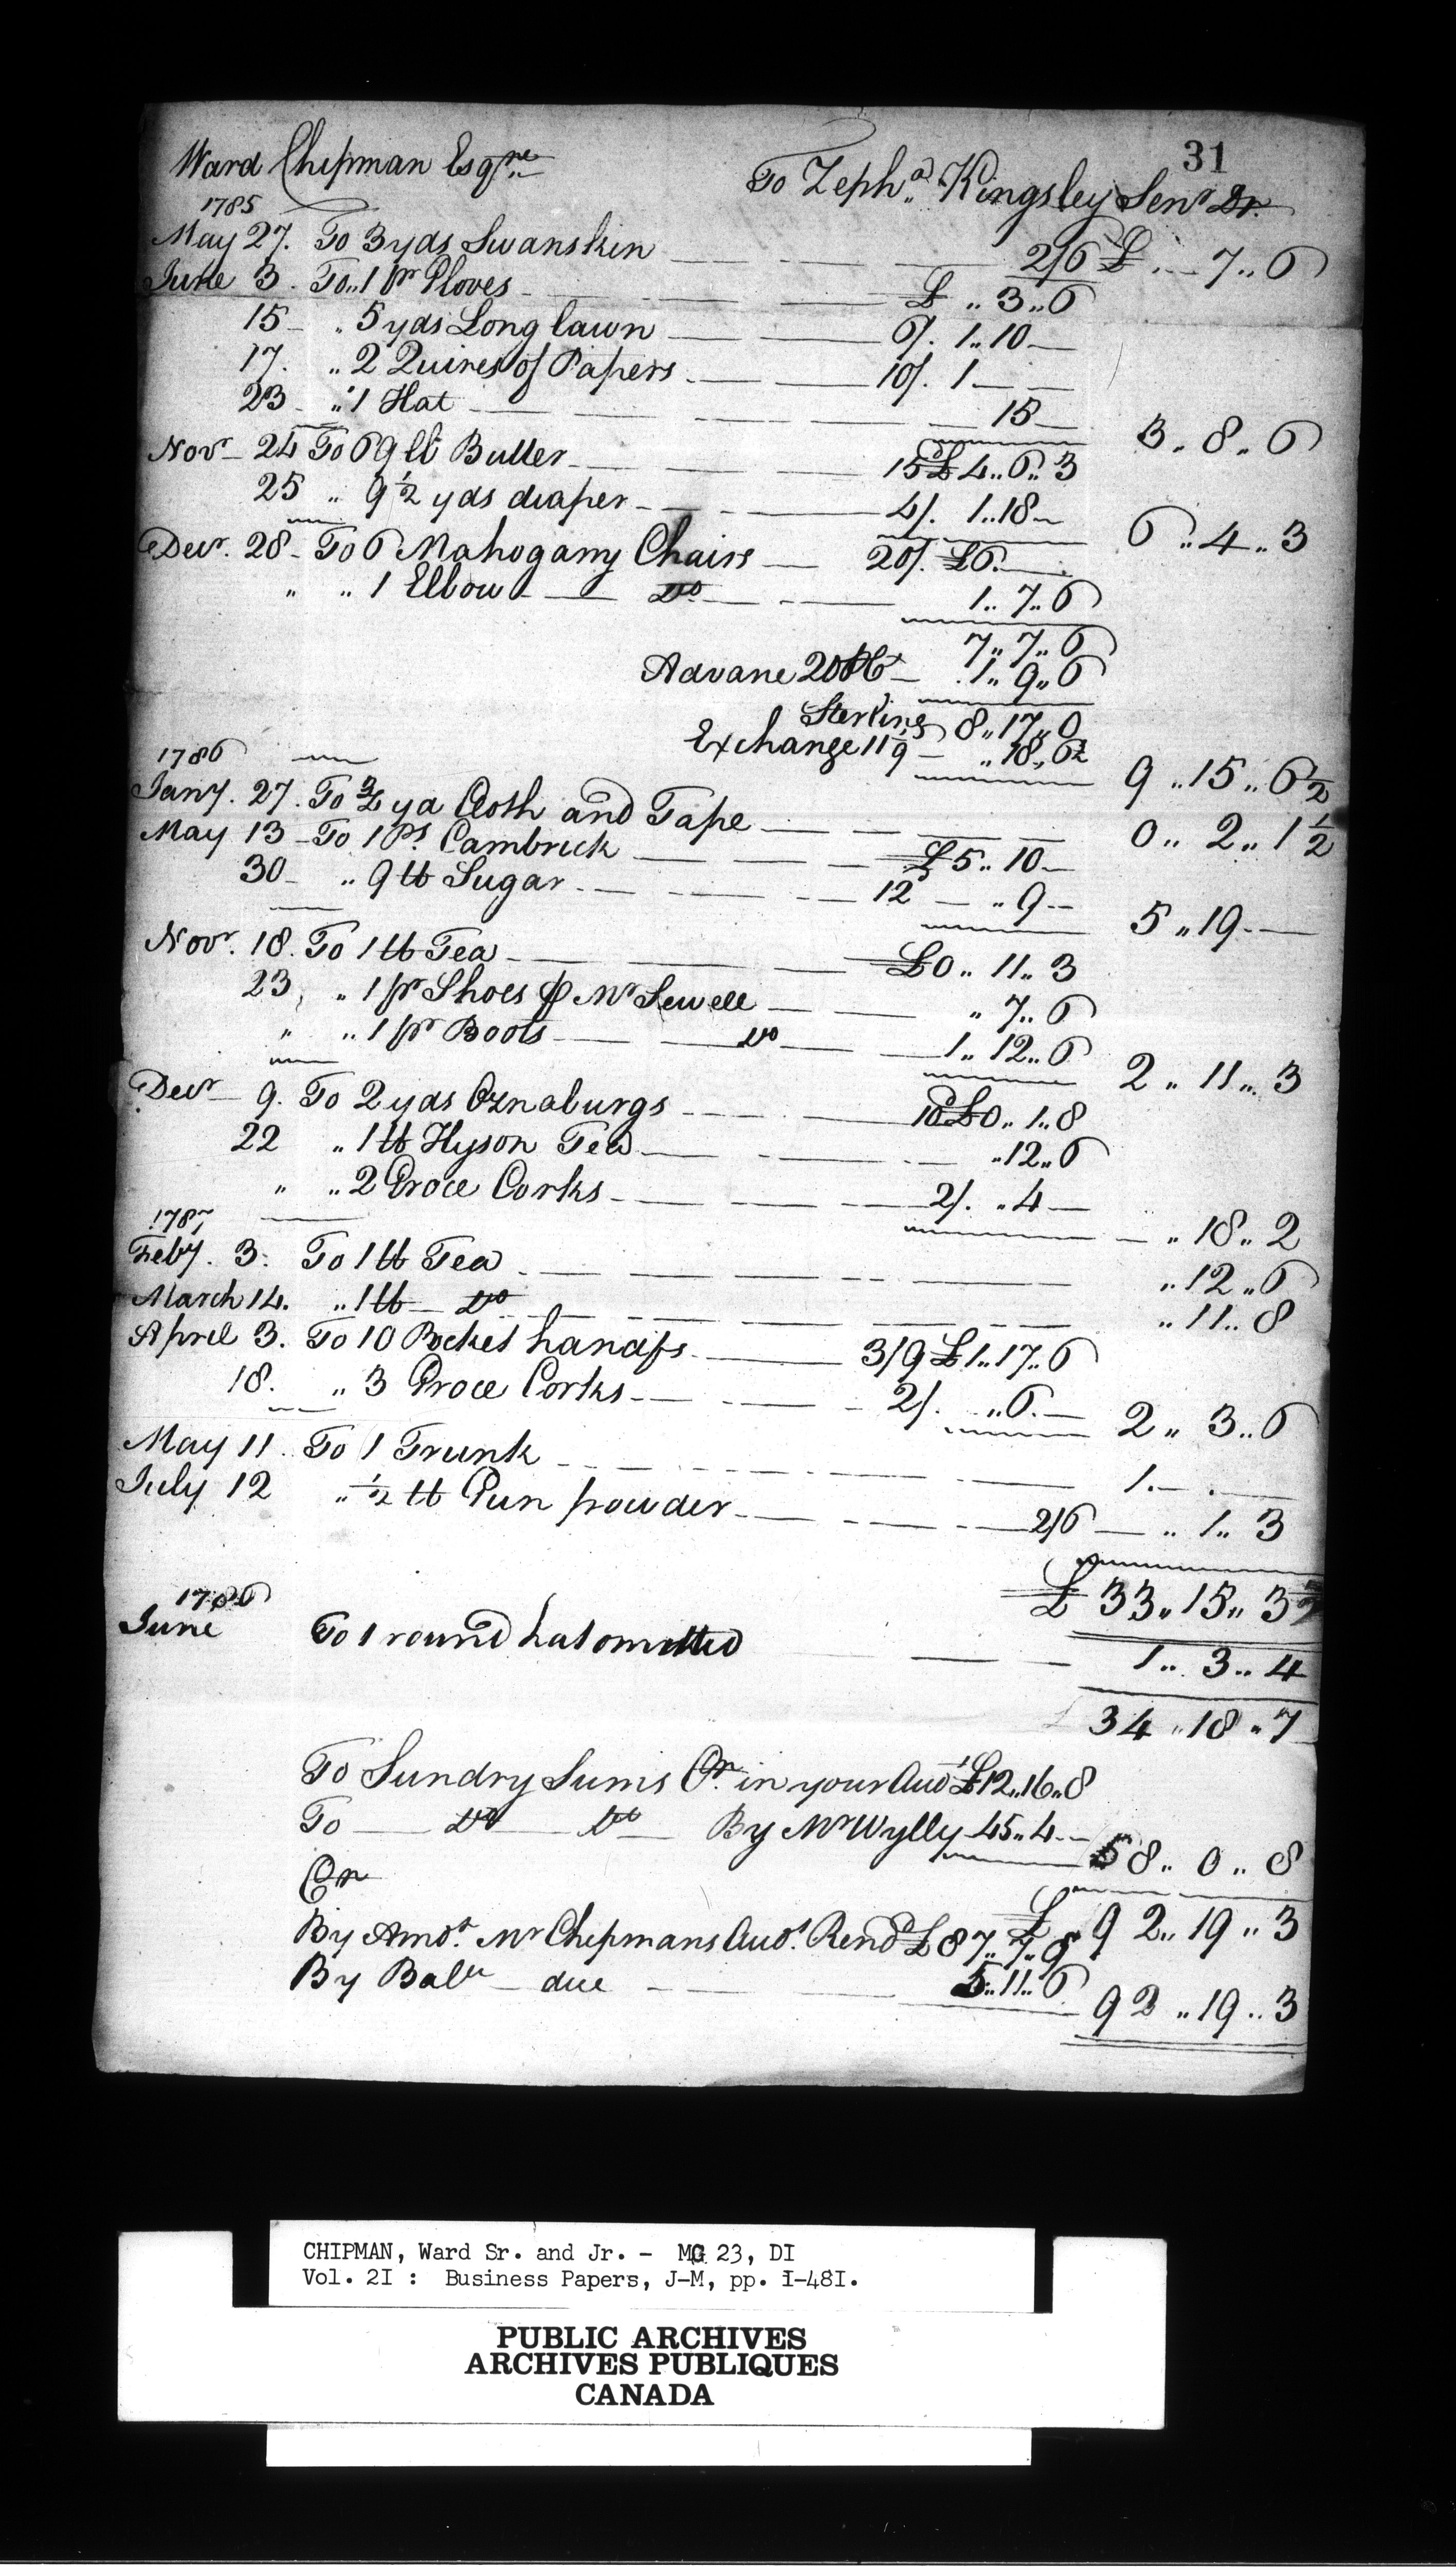 31
Ward Chipman Esqre. To Zepha. Kingsley Senr Dr.
1785
May 27. To 3 yds Swanskin 2/6 £ 7..6
June 3. To..1 pr Gloves £ ..3..6
15 " 5 yds Long lawn 6/. 1..10
17. " 2 Quires of Papers 10/. 1
23 " 1 Hat 15
3..8..6
Novr 24 To 69 lb Butter 15d £4..6..3
25 " 9 1/2 yds diaper 4/. 1..18
6..4..3
Decr. 28 To 6 Mahogany Chairs 20/. £6
" " 1 Elbow Do 1..7..6
7..7..6
Advance 20 P Ct 1..9..6
Sterling 8..17..0
Exchange 11 1/9 ..18..6 1/2
9..15..6 1/2
1786
Jany. 27. To yd Cloth and Tape 0..2..1 1/2
May 13 To 1 Ps. Cambrick £5..10
30 " 9 lb Sugar 12 ..9
5..19
Novr. 18. To 1 lb Tea £0..11..3
23 " 1 pr Shoes P Mr Sewell " 7..6
" " 1 pr Boots Do 1..12..6
2..11..3
Decr 9. To 2 yds Oznaburgs 10d £0..1..8
22 " 1 lb Hyson Tea ..12..6
" " 2 Groce Corks 2/. ..4
..18..2
1787
Feby. 3. To 1 lb Tea ..12..6
March 14. " 1 lb Do ..11..8
April 3. To 10 Pocket handfs 3/9 £1..17..6
18. " 3 Groce Corks 2/. ..6.
2..3..6
May 11. To 1 Trunk 1.
July 12 " 1/2 lb Gun powder 2/6 ..1..3
£ 33..15..3
1786
June To 1 round hat omitted 1..3..4
34..18..7
To Sundry Sums Cr. in your Acct £12..16..8
To Do Do By Mr Wylly 45..4
58..0..8
Cr £ 92..19..3
By Amot. Mr Chipmans Acct. Rend £87..7..9
By Balce due 5..11..6
92..19..3
CHIPMAN, Ward Sr. and Jr. - MG 23, DI
Vol. 21 : Business Papers, J-M, pp. 1-481.
PUBLIC ARCHIVES
ARCHIVES PUBLIQUES
CANADA